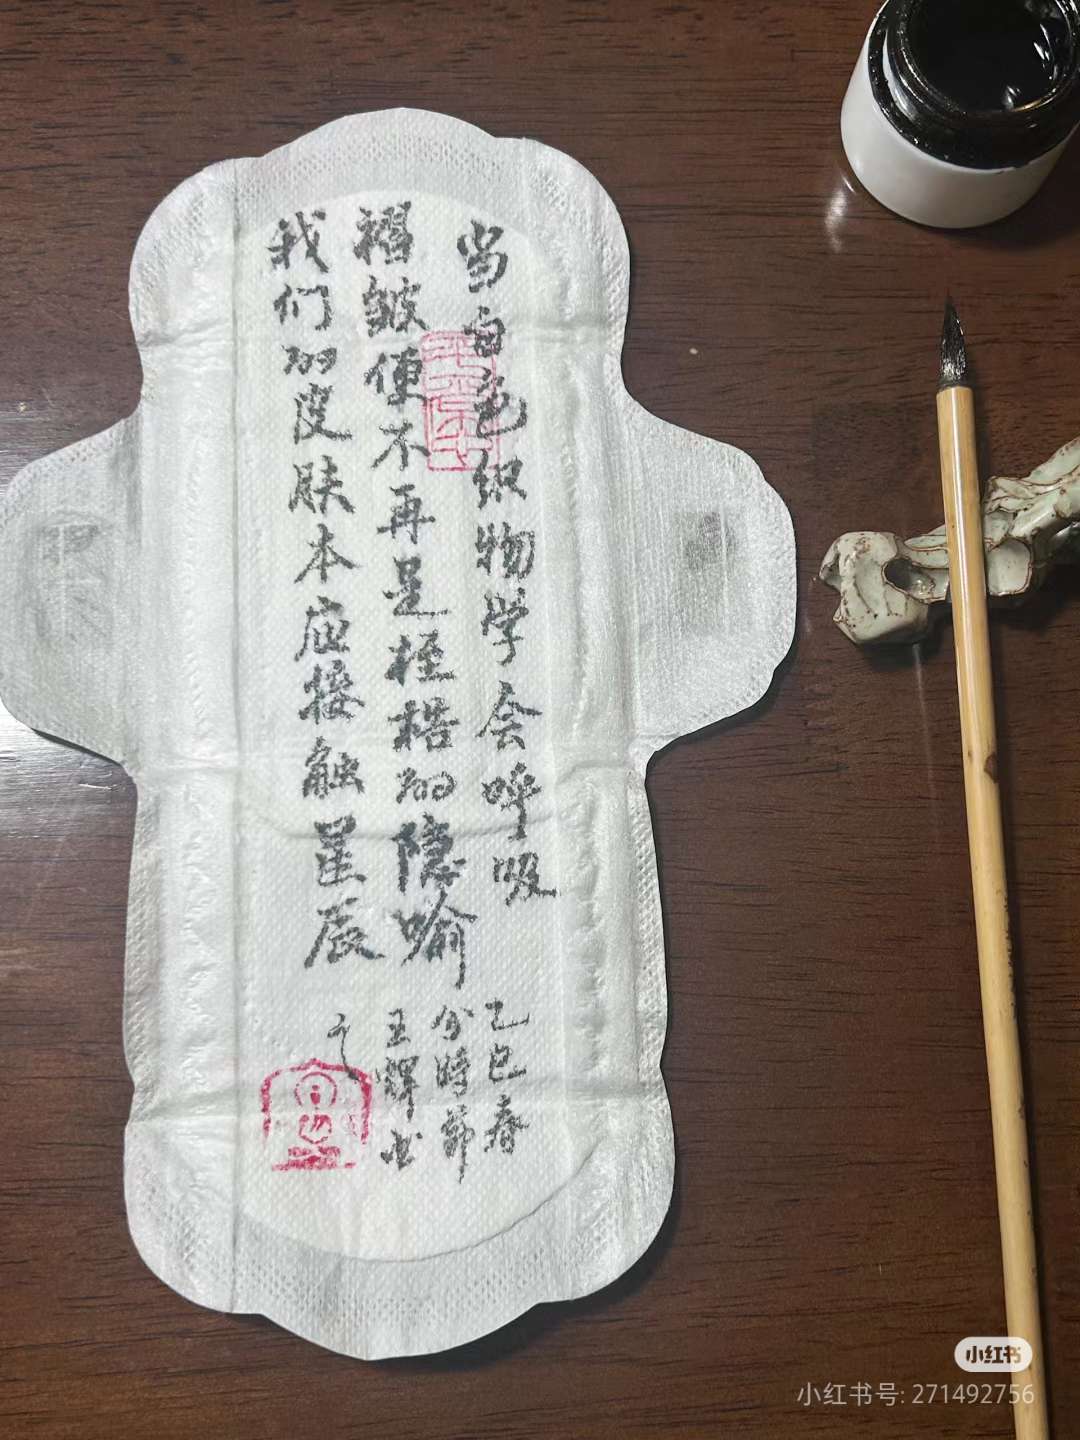 当白色织物学会呼吸
褶皱便不再是桎梏的隐喻
我们的皮肤本应接触星辰
乙巳春
分時節
王輝书
小红书
小红书号: 271492756